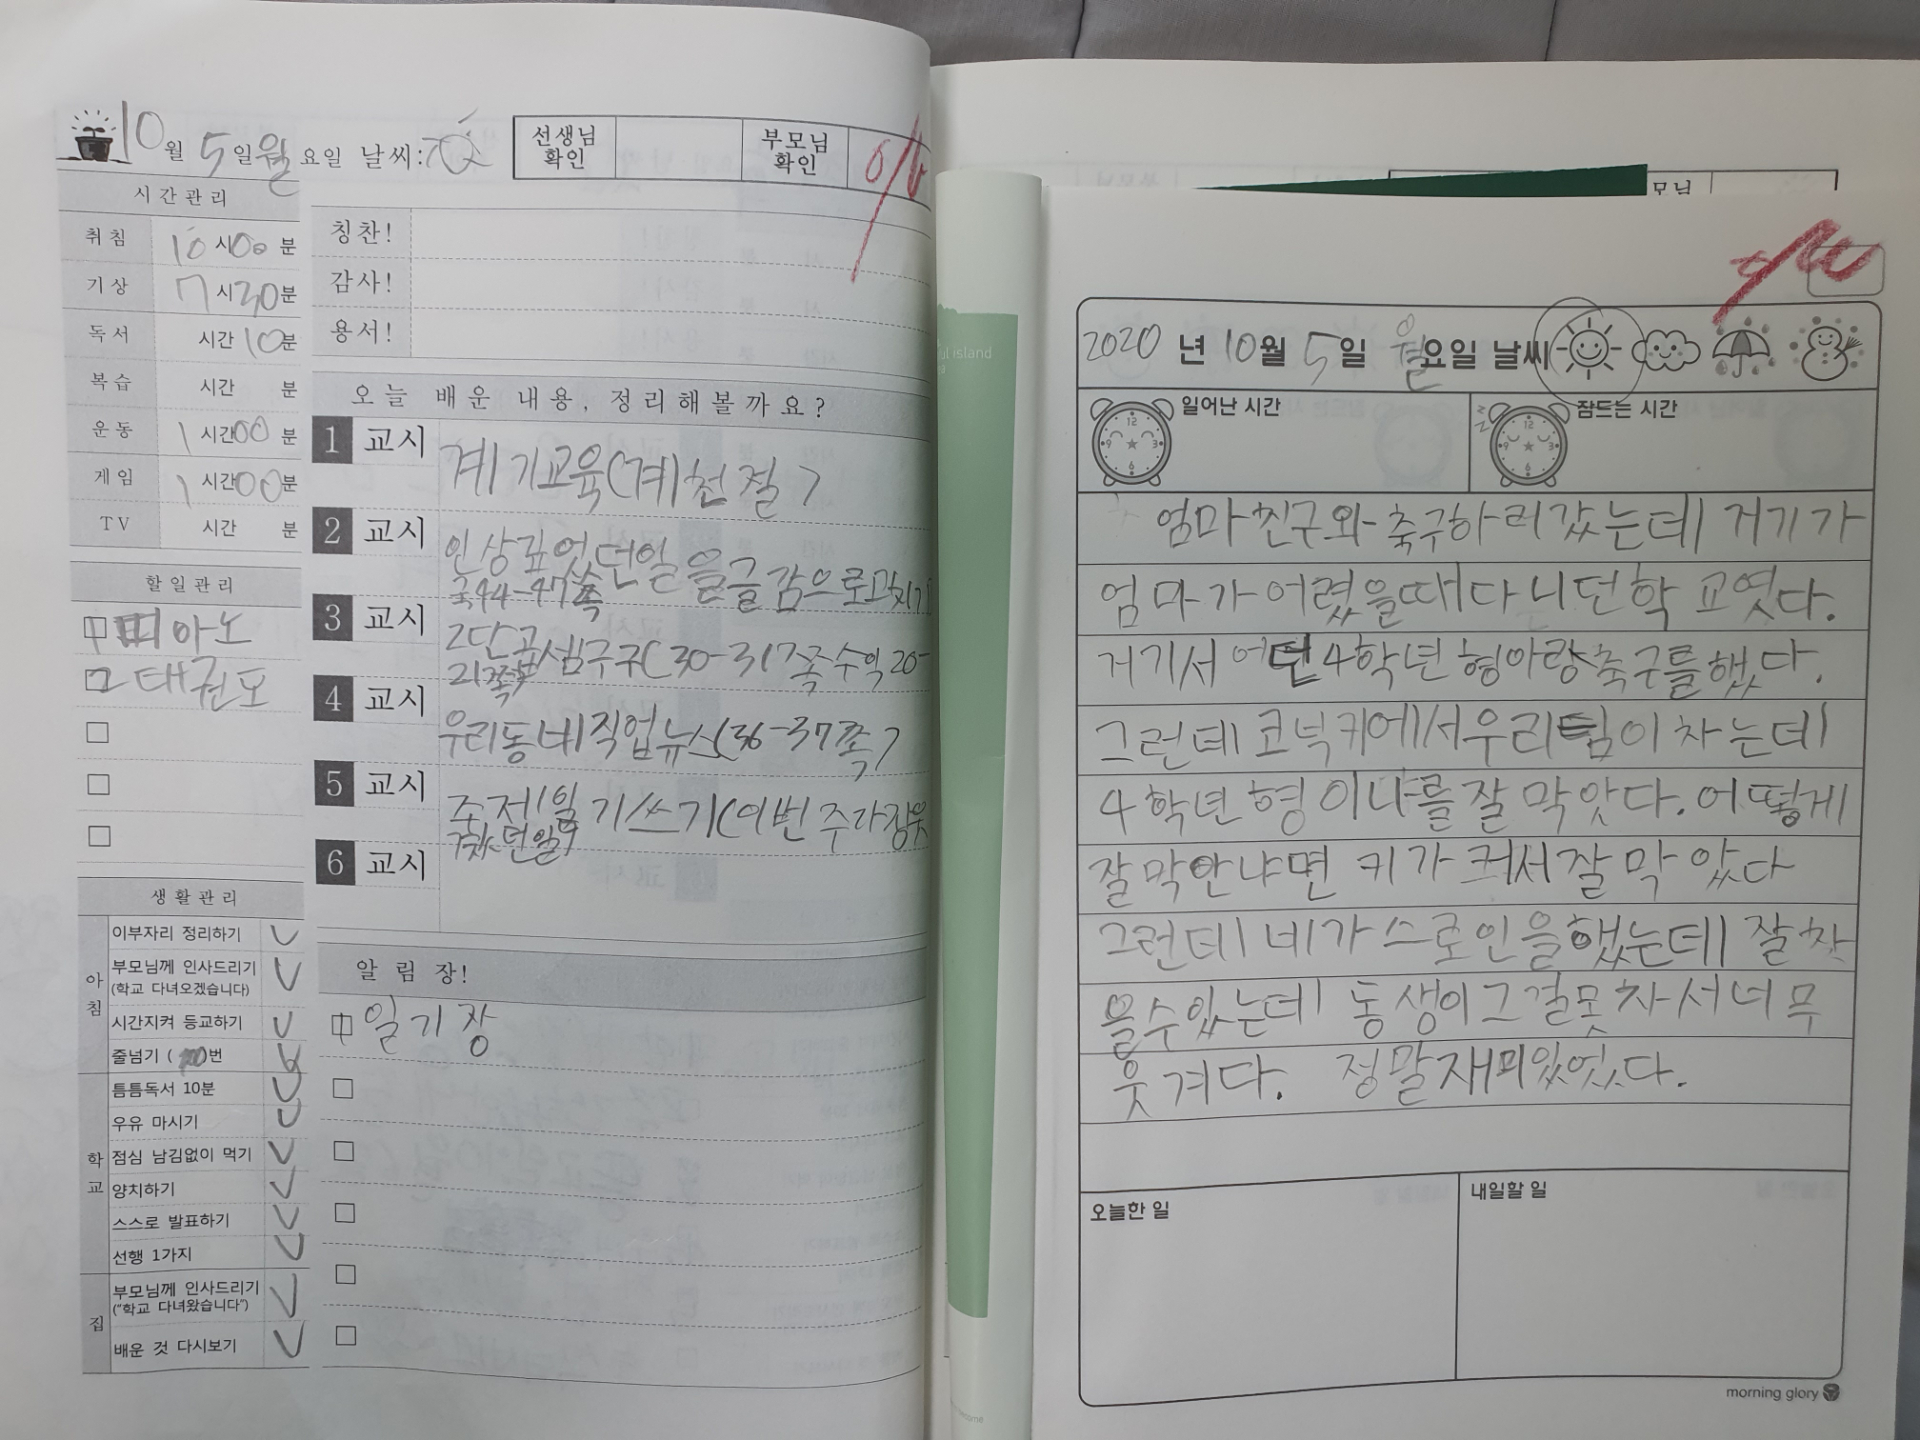 10월 5일 월요일 날씨:
선생님 확인
부모님 확인
시간관리
취침 10시 00분
기상 7시 30분
독서 시간 10분
복습 시간 분
운동 1시간 00분
게임 1시간 00분
TV 시간 분
할일관리
피아노
태권도
생활관리
아침
이부자리 정리하기
부모님께 인사드리기
(학교 다녀오겠습니다)
시간지켜 등교하기
줄넘기 ( )번
학교
틈틈독서 10분
우유 마시기
점심 남김없이 먹기
양치하기
스스로 발표하기
선행 1가지
집
부모님께 인사드리기
("학교 다녀왔습니다")
배운 것 다시보기
칭찬!
감사!
용서!
오늘 배운 내용, 정리해볼까요?
1 교시 계기교육(계천절)
2 교시 인상깊었던일을글감으로
국44-47쪽
3 교시 2단곱셈구구(30-317쪽수익20-
21쪽)
4 교시 우리동네직업뉴스(36-37쪽)
5 교시 주제일기쓰기(이번주가장웃
겼던일)
6 교시
알림장!
일기장
ul island
모님
2020년 10월 5일 월요일 날씨
일어난 시간
잠드는 시간
엄마친구와 축구하러갔는데 거기가
엄마가어렸을때다니던학교였다.
거기서 어떤4학년형아랑축구를했다.
그런데 코너키에서우리팀이차는데
4학년형이나를잘막앗다.어떻게
잘막안냐면 키가커서잘막았다
그런데 네가스로인을했는데 잘찻
을수있는데 동생이그걸못차서너무
웃겨다. 정말재미있엇다.
오늘한 일
내일할 일
morning glory